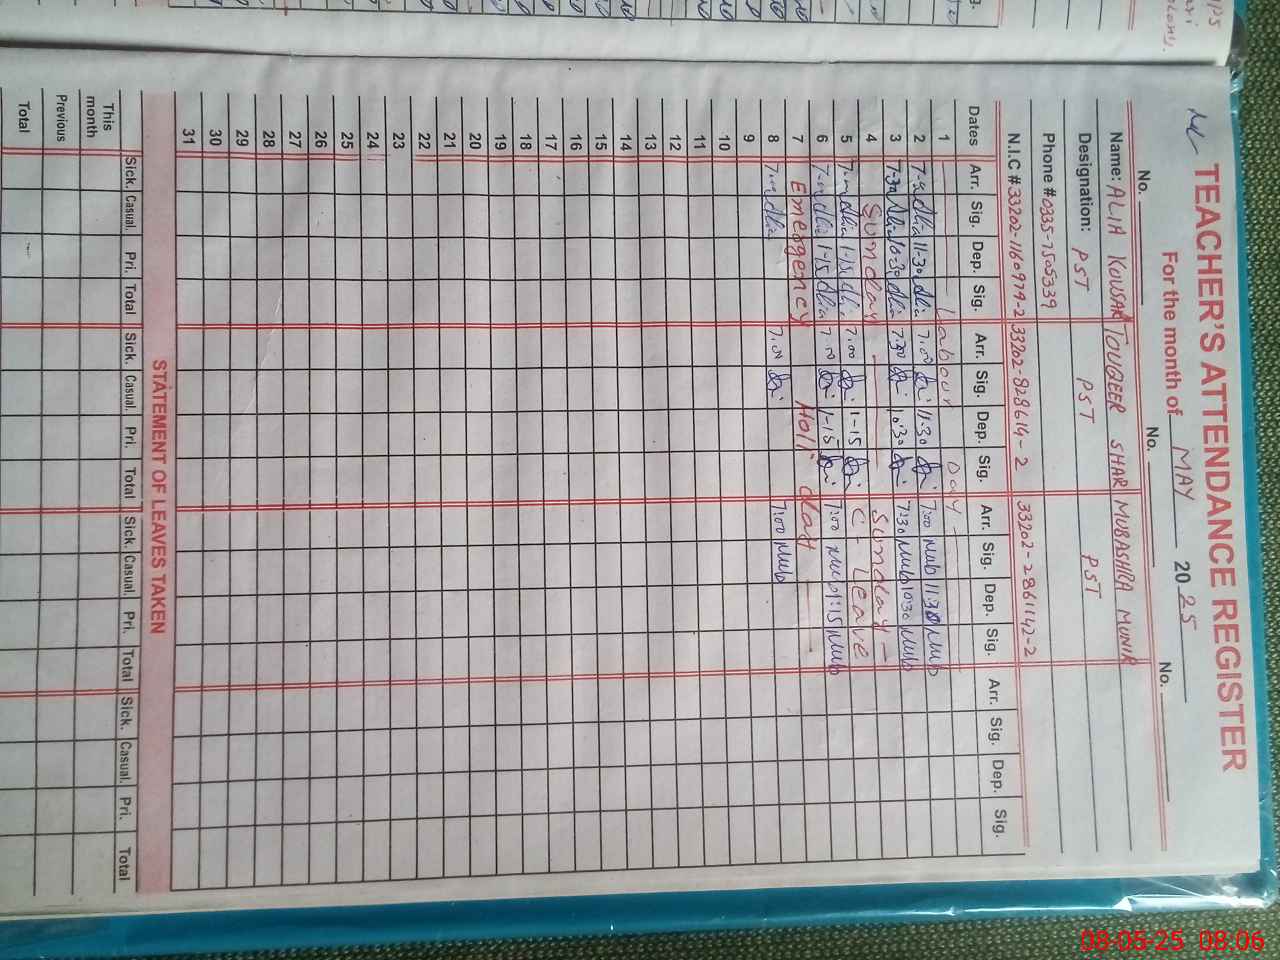 TEACHER'S ATTENDANCE REGISTER
For the month of MAY 2025
No. No. No.
Name: ALIA KOUSAR TOUQEER SHAR MUBASHRA MUNIR
Designation: PST PST PST
Phone # 0335-7505339
N.I.C # 33202-1160979-2 33202-828614-2 33202-2861142-2
Dates Arr. Sig. Dep. Sig. Arr. Sig. Dep. Sig. Arr. Sig. Dep. Sig. Arr. Sig. Dep. Sig.
1 Labour Day
2 11:30 7.00 11:30 7:00 Mub 11:30 Mub
3 7:30 10:30 7:30 10:30 7:30 Mub 10:30 Mub
4 Sunday Sunday
5 1-15 7.00 1-15 C - Leave
6 1-15 7.00 1-15 7:00 Mub 1:15 Mub
7 Emergency Holi day
8 7.00 7:00 Mub
9
10
11
12
13
14
15
16
17
18
19
20
21
22
23
24
25
26
27
28
29
30
31
STATEMENT OF LEAVES TAKEN
Sick. Casual. Pri. Total Sick. Casual. Pri. Total Sick. Casual. Pri. Total Sick. Casual. Pri. Total
This month
Previous
Total
08-05-25 08:06